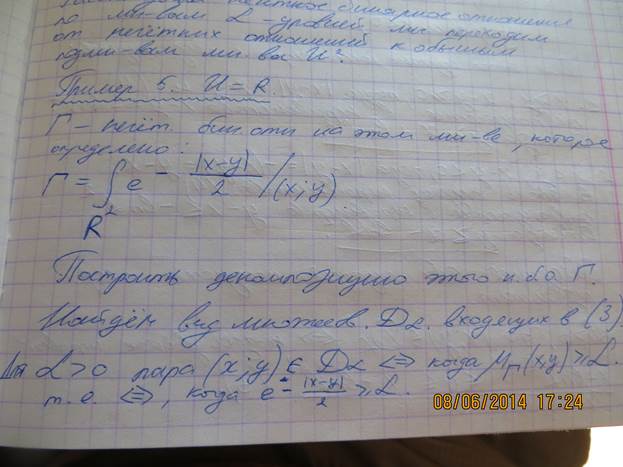 нечёткое бинарное отношение
по мн-вам α-уровней мы переходим
от нечётких отношений к обычным
подмн-вам мн-ва U².
Пример 5. U = R.
Г - нечёт. бин. отн. на этом мн-ве, которое
определено:
Г = ∫ e^- |x-y|/2 /(x;y)
R²
Построить декомпозицию этого н.б.о. Г.
Найдём вид множеств. Dα. входящих в (3)
Для α>0 пара (x;y) ∈ Dα <=> когда μг(x,y) ≥ α.
т.е. <=>, когда e^- |x-y|/2 ≥ α.
08/06/2014 17:24